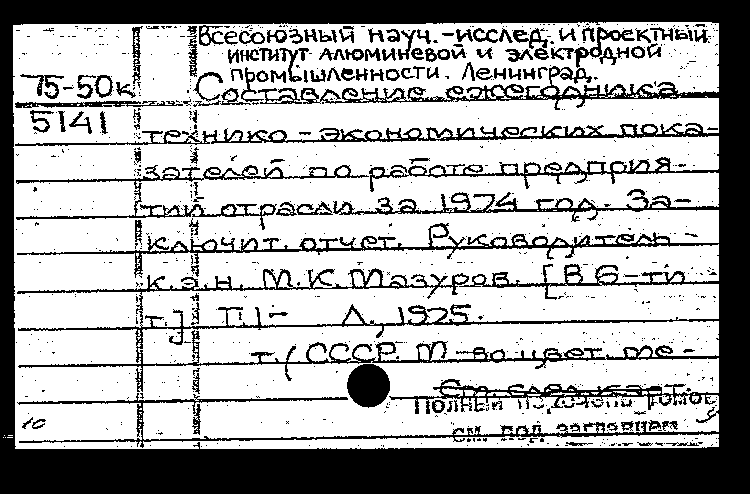 Всесоюзный науч.-исслед. и проектный
институт алюминевой и электродной
промышленности. Ленинград.
75-50к
Составление ежегодника
5141
технико-экономических пока-
зателей по работе предприя-
тий отрасли за 1974 год. За-
ключит. отчет. Руководитель -
к.э.н. М.К. Мазуров. [В 6-ти
т.] Т.1- Л., 1925.
т. (СССР. М-во цвет. ме-
См. след. карт.
Полный перечень томов
см. под заглавием
10